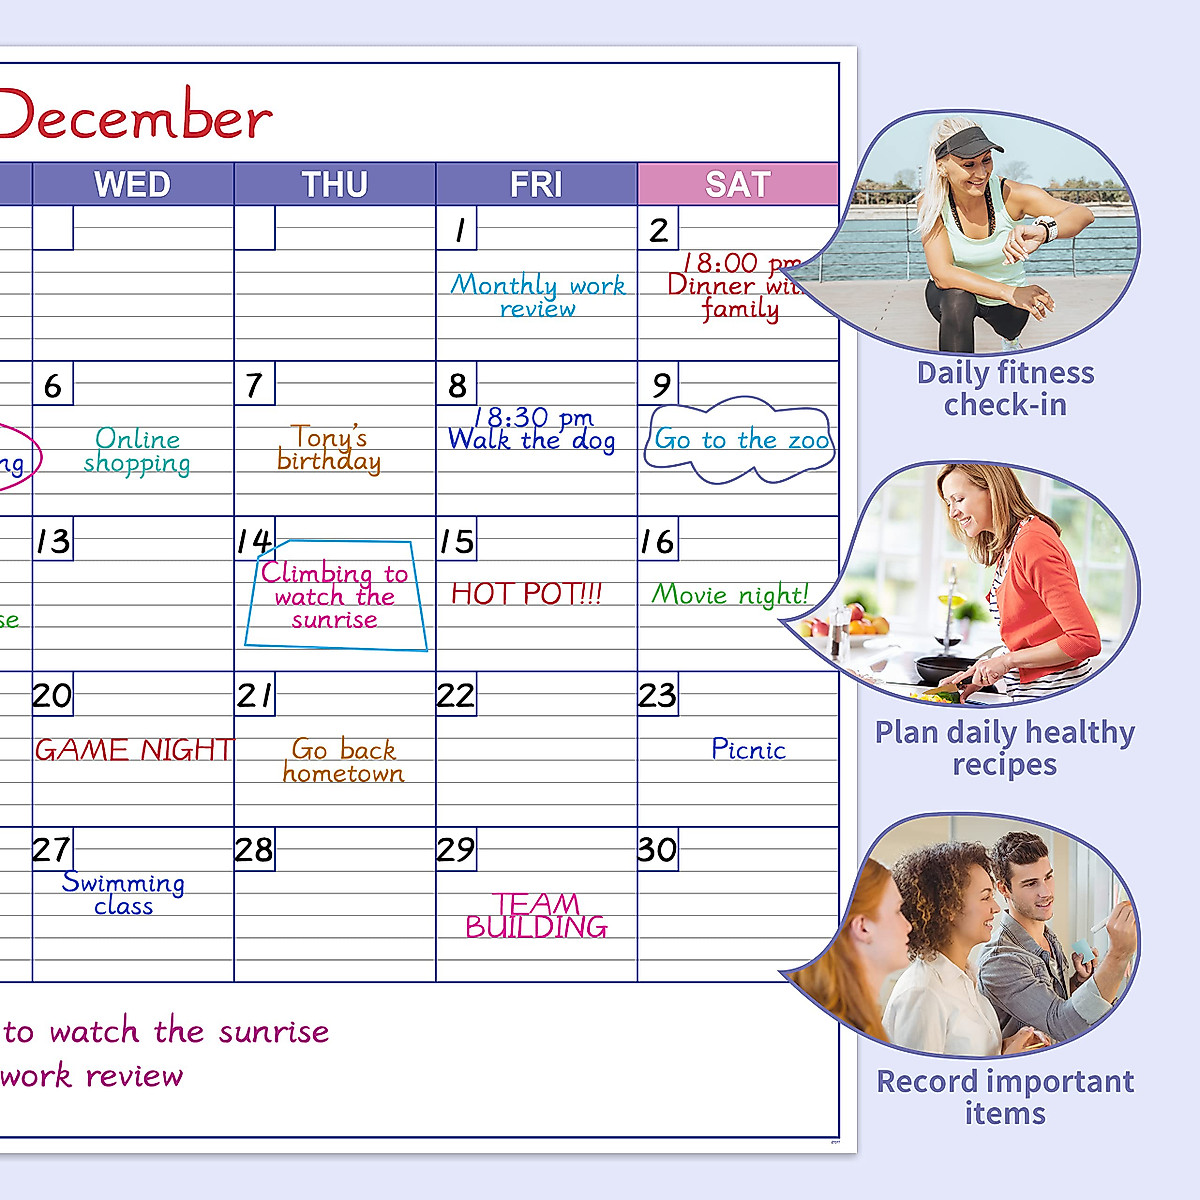 December
WED THU FRI SAT
1 2
Monthly work
review
18:00 pm
Dinner
family
6 7 8 9
Online
shopping
Tony's
birthday
18:30 pm
Walk the dog
Go to the zoo
13 14 15 16
Climbing to
watch the
sunrise
HOT POT!!!
Movie night!
20 21 22 23
GAME NIGHT
Go back
hometown
Picnic
27 28 29 30
Swimming
class
TEAM
BUILDING
to watch the sunrise
work review
Daily fitness
check-in
Plan daily healthy
recipes
Record important
items